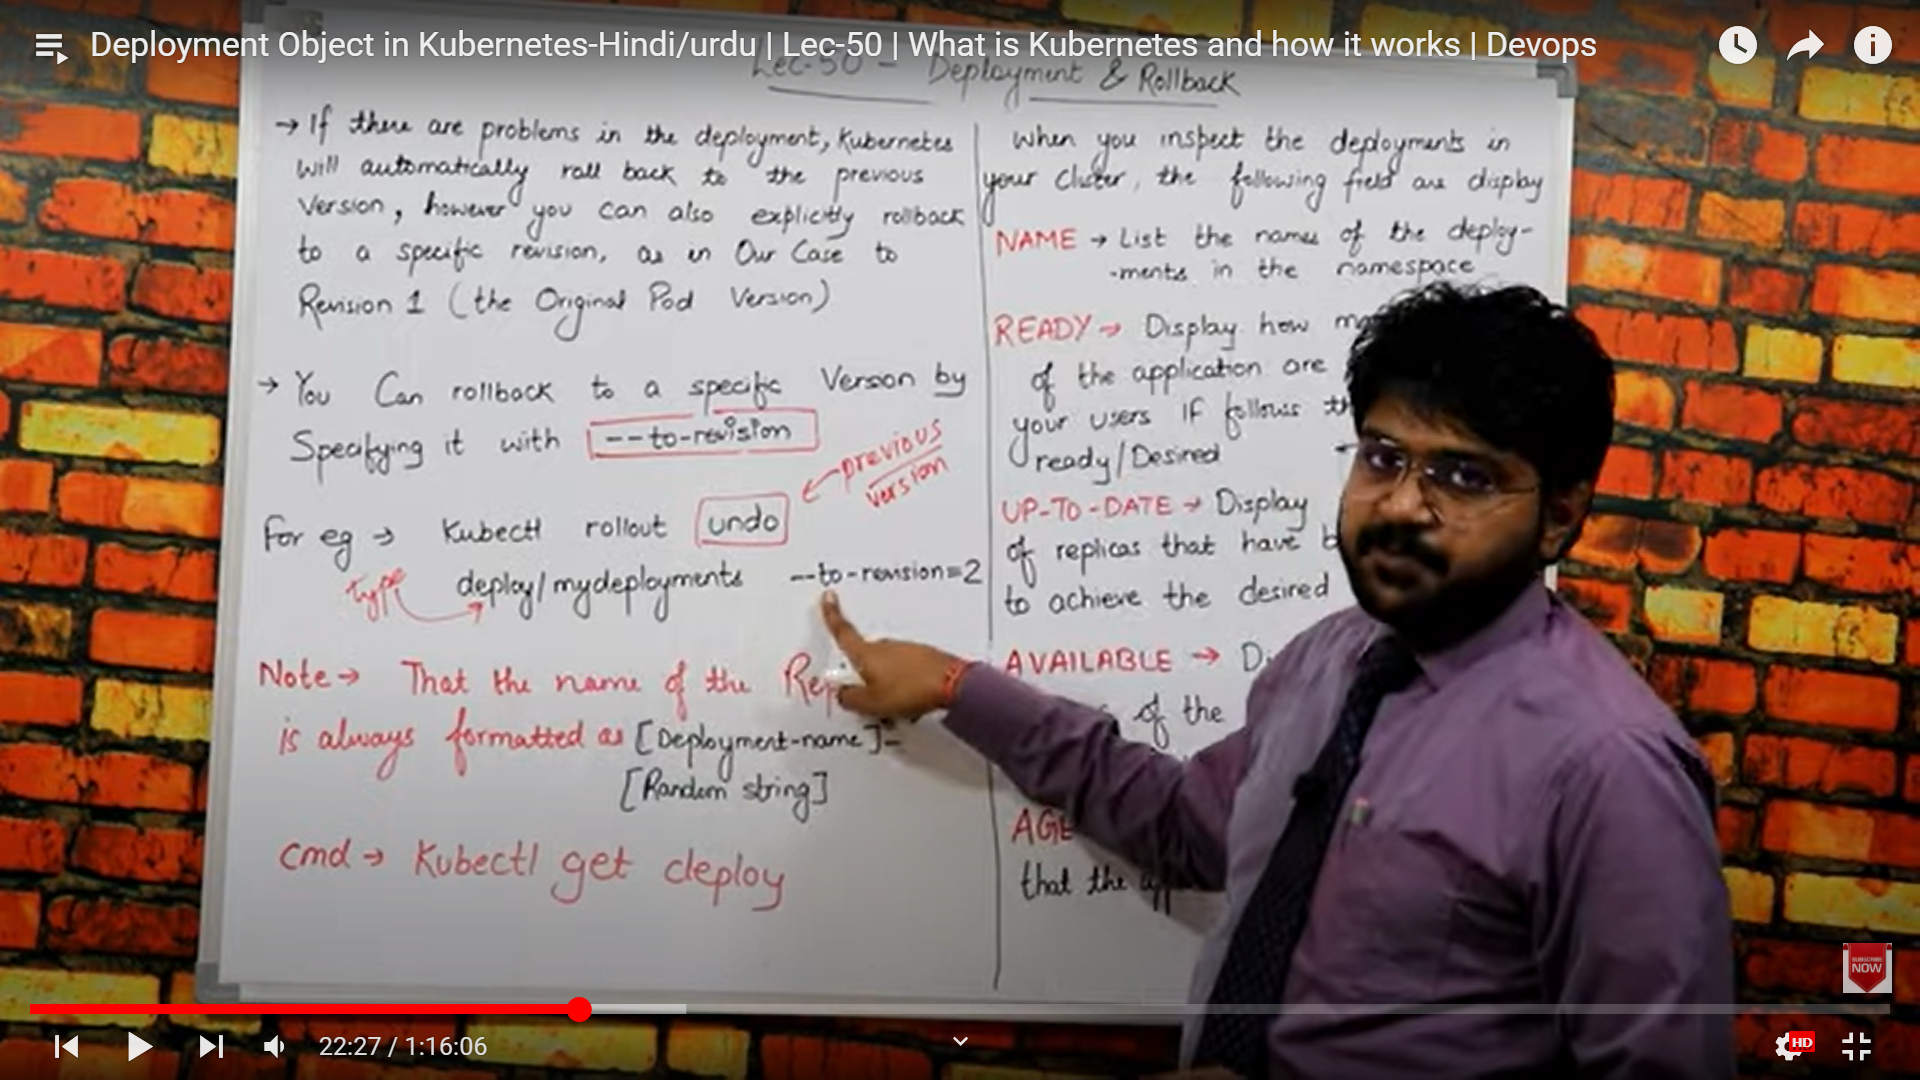 Deployment Object in Kubernetes-Hindi/urdu | Lec-50 | What is Kubernetes and how it works | Devops
Lec-50 - Deployment & Rollback
→ If there are problems in the deployment, Kubernetes
will automatically roll back to the previous
Version, however you can also explicitly rollback
to a specific revision, as in Our Case to
Revision 1 (the Original Pod Version)
→ You Can rollback to a specific Version by
Specifying it with --to-revision
previous
version
For eg → Kubectl rollout undo
deploy/mydeployments --to-revision=2
type
Note → That the name of the
is always formatted as [Deployment-name]-
[Random string]
cmd → Kubectl get deploy
When you inspect the deployments in
your cluster, the following field are display
NAME → List the names of the deploy-
-ments in the namespace
READY → Display how
of the application are
your users if follows
ready/Desired
UP-TO-DATE → Display
of replicas that have
to achieve the desired
AVAILABLE →
of the
AGE
that the
SUBSCRIBE
NOW
22:27 / 1:16:06
HD